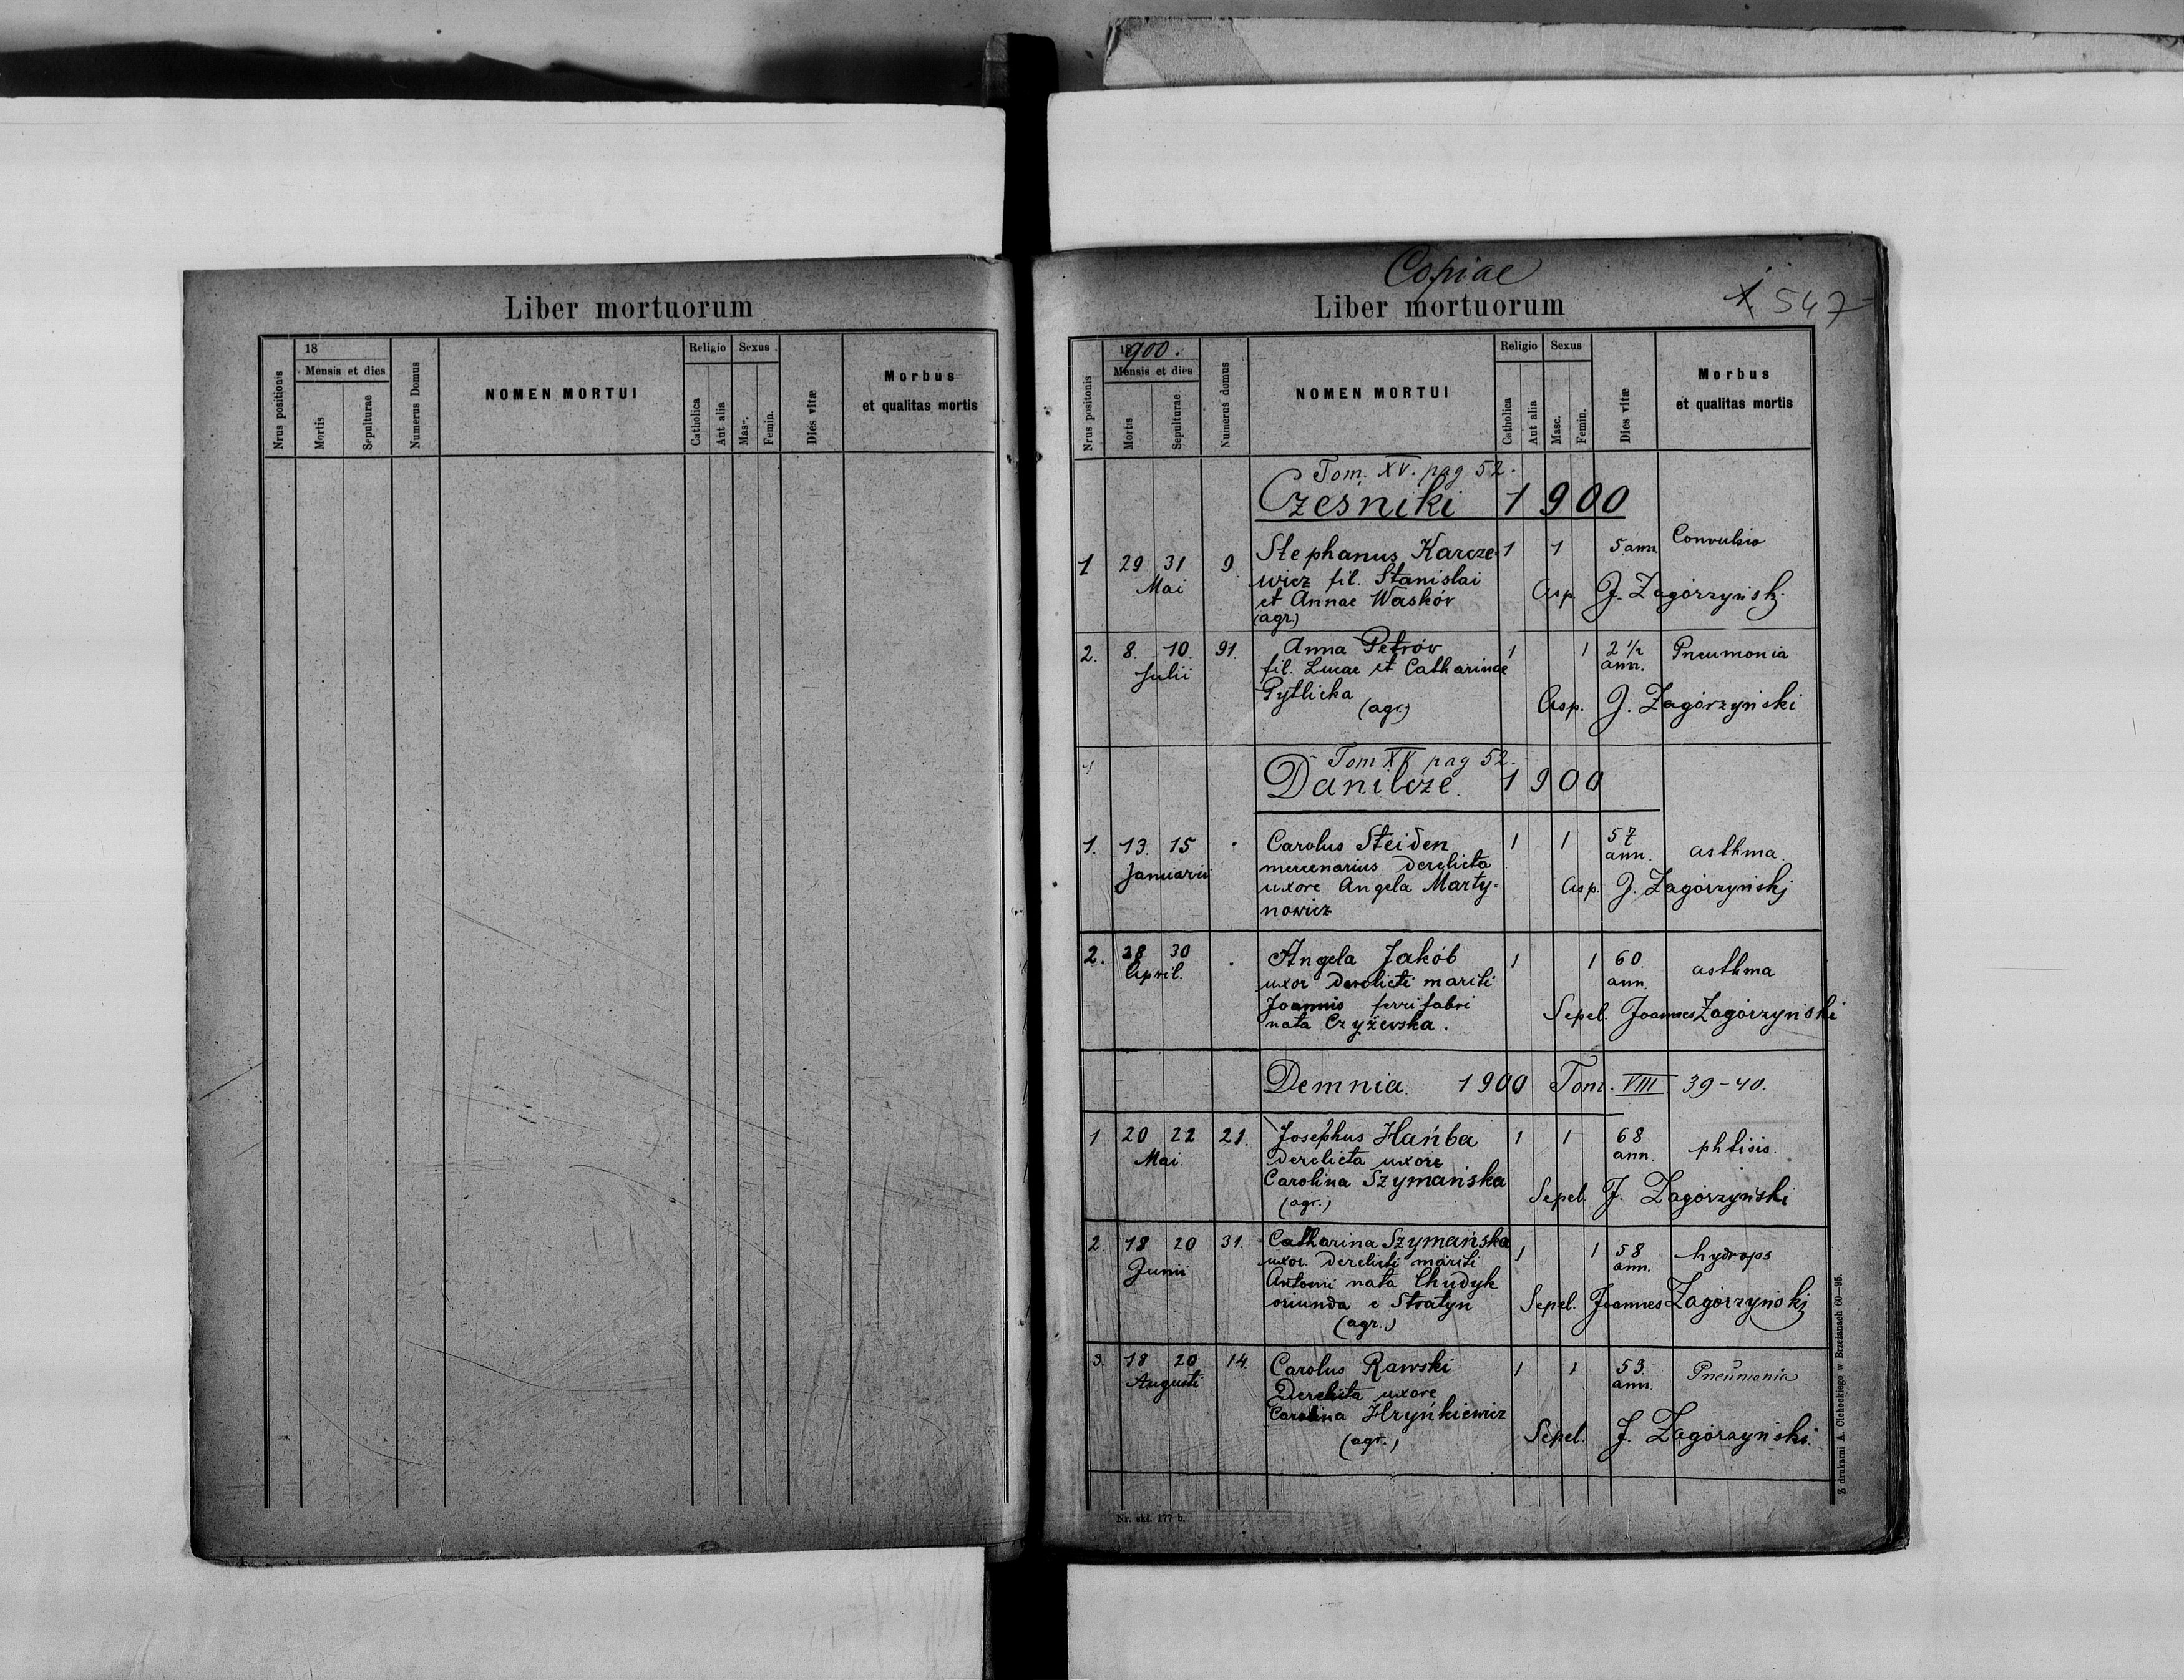 Liber mortuorum
Nrus positionis
18
Mensis et dies
Mortis
Sepulturae
Numerus Domus
NOMEN MORTUI
Religio
Catholica
Aut alia
Sexus
Masc.
Femin.
Dies vitæ
Morbus
et qualitas mortis
Copiae
Liber mortuorum
1 547
Nrus positonis
1900.
Mensis et dies
Mortis
Sepulturae
Numerus domus
NOMEN MORTUI
Religio
Catholica
Aut alia
Sexus
Masc.
Femin.
Dies vitæ
Morbus
et qualitas mortis
Tom. XV. pag 52.
Czesniki 1900
1 29 31 9 Stephanus Karcze- 1 1 5 ann Convulsio
Mai wicz fil. Stanislai
et Annae Waskóv Asp. J. Zagórzyński
(agr)
2. 8. 10. 91. Anna Petróv 1 1 2 1/2 Pneumonia
Julii fil. Lucae et Catharinae ann.
Pytlicka
(agr.) Asp. J. Zagórzyński
1 Tom XV pag 52.
Danilcze. 1900
1. 13. 15 Carolus Steiden 1 1 57 asthma
Januarii mercenarius derelicta ann.
uxore Angela Marty= Asp. J. Zagórzyński
nowicz
2. 28 30 Angela Jakób 1 1 60. asthma
April. uxor derelicti mariti ann.
Joannis ferrifabri Sepel. Joannes Zagórzyński
nata Czyżewska.
Demnia. 1900 Tom. VIII 39-40.
1 20 22 21. Josephus Hańba 1 1 68 phtisis.
Mai. derelicta uxore ann.
Carolina Szymańska
(agr.) Sepel. J. Zagórzyński
2. 18 20 31. Catharina Szymańska 1 1 58 hydrops
Junii uxor derelicti mariti ann.
Antonii nata Chudyk
oriunda e Stratyn Sepel. Joannes Zagórzyński
(agr.)
3. 18 20 14. Carolus Rawski 1 1 53. Pneumonia
Augusti Derelicta uxore ann.
Carolina Hryńkiewicz
(agr.) Sepel. J. Zagórzyński.
Nr. skł. 177 b.
Z drukarni A. Cichockiego w Brzeżanach 60—95.